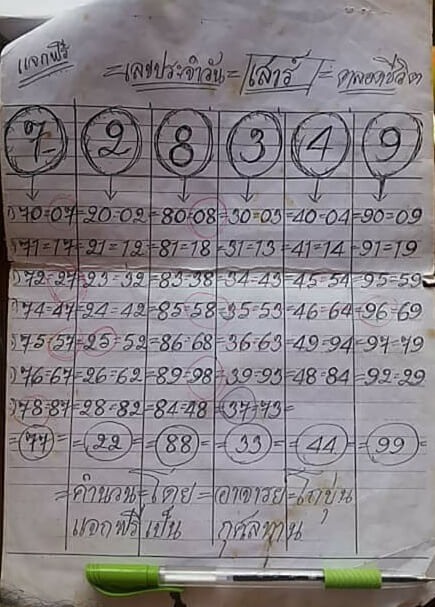 แจกฟรี
=เลขประจำวัน= เสาร์ =ตลอดชีวิต
7 2 8 3 4 9
1) 70=07=20=02=80=08=30=03=40=04=90=09
2) 71=17=21=12=81=18=31=13=41=14=91=19
3) 72=27=23=32=83=38=34=43=45=54=95=59
4) 74=47=24=42=85=58=35=53=46=64=96=69
5) 75=57=25=52=86=68=36=63=49=94=97=79
6) 76=67=26=62=89=98=39=93=48=84=92=29
7) 78=87=28=82=84=48=37=73=
=77= =22= =88= =33= =44= =99=
=คำนวน=โดย=อาจารย์=
แจกฟรี เป็น กุศลทาน